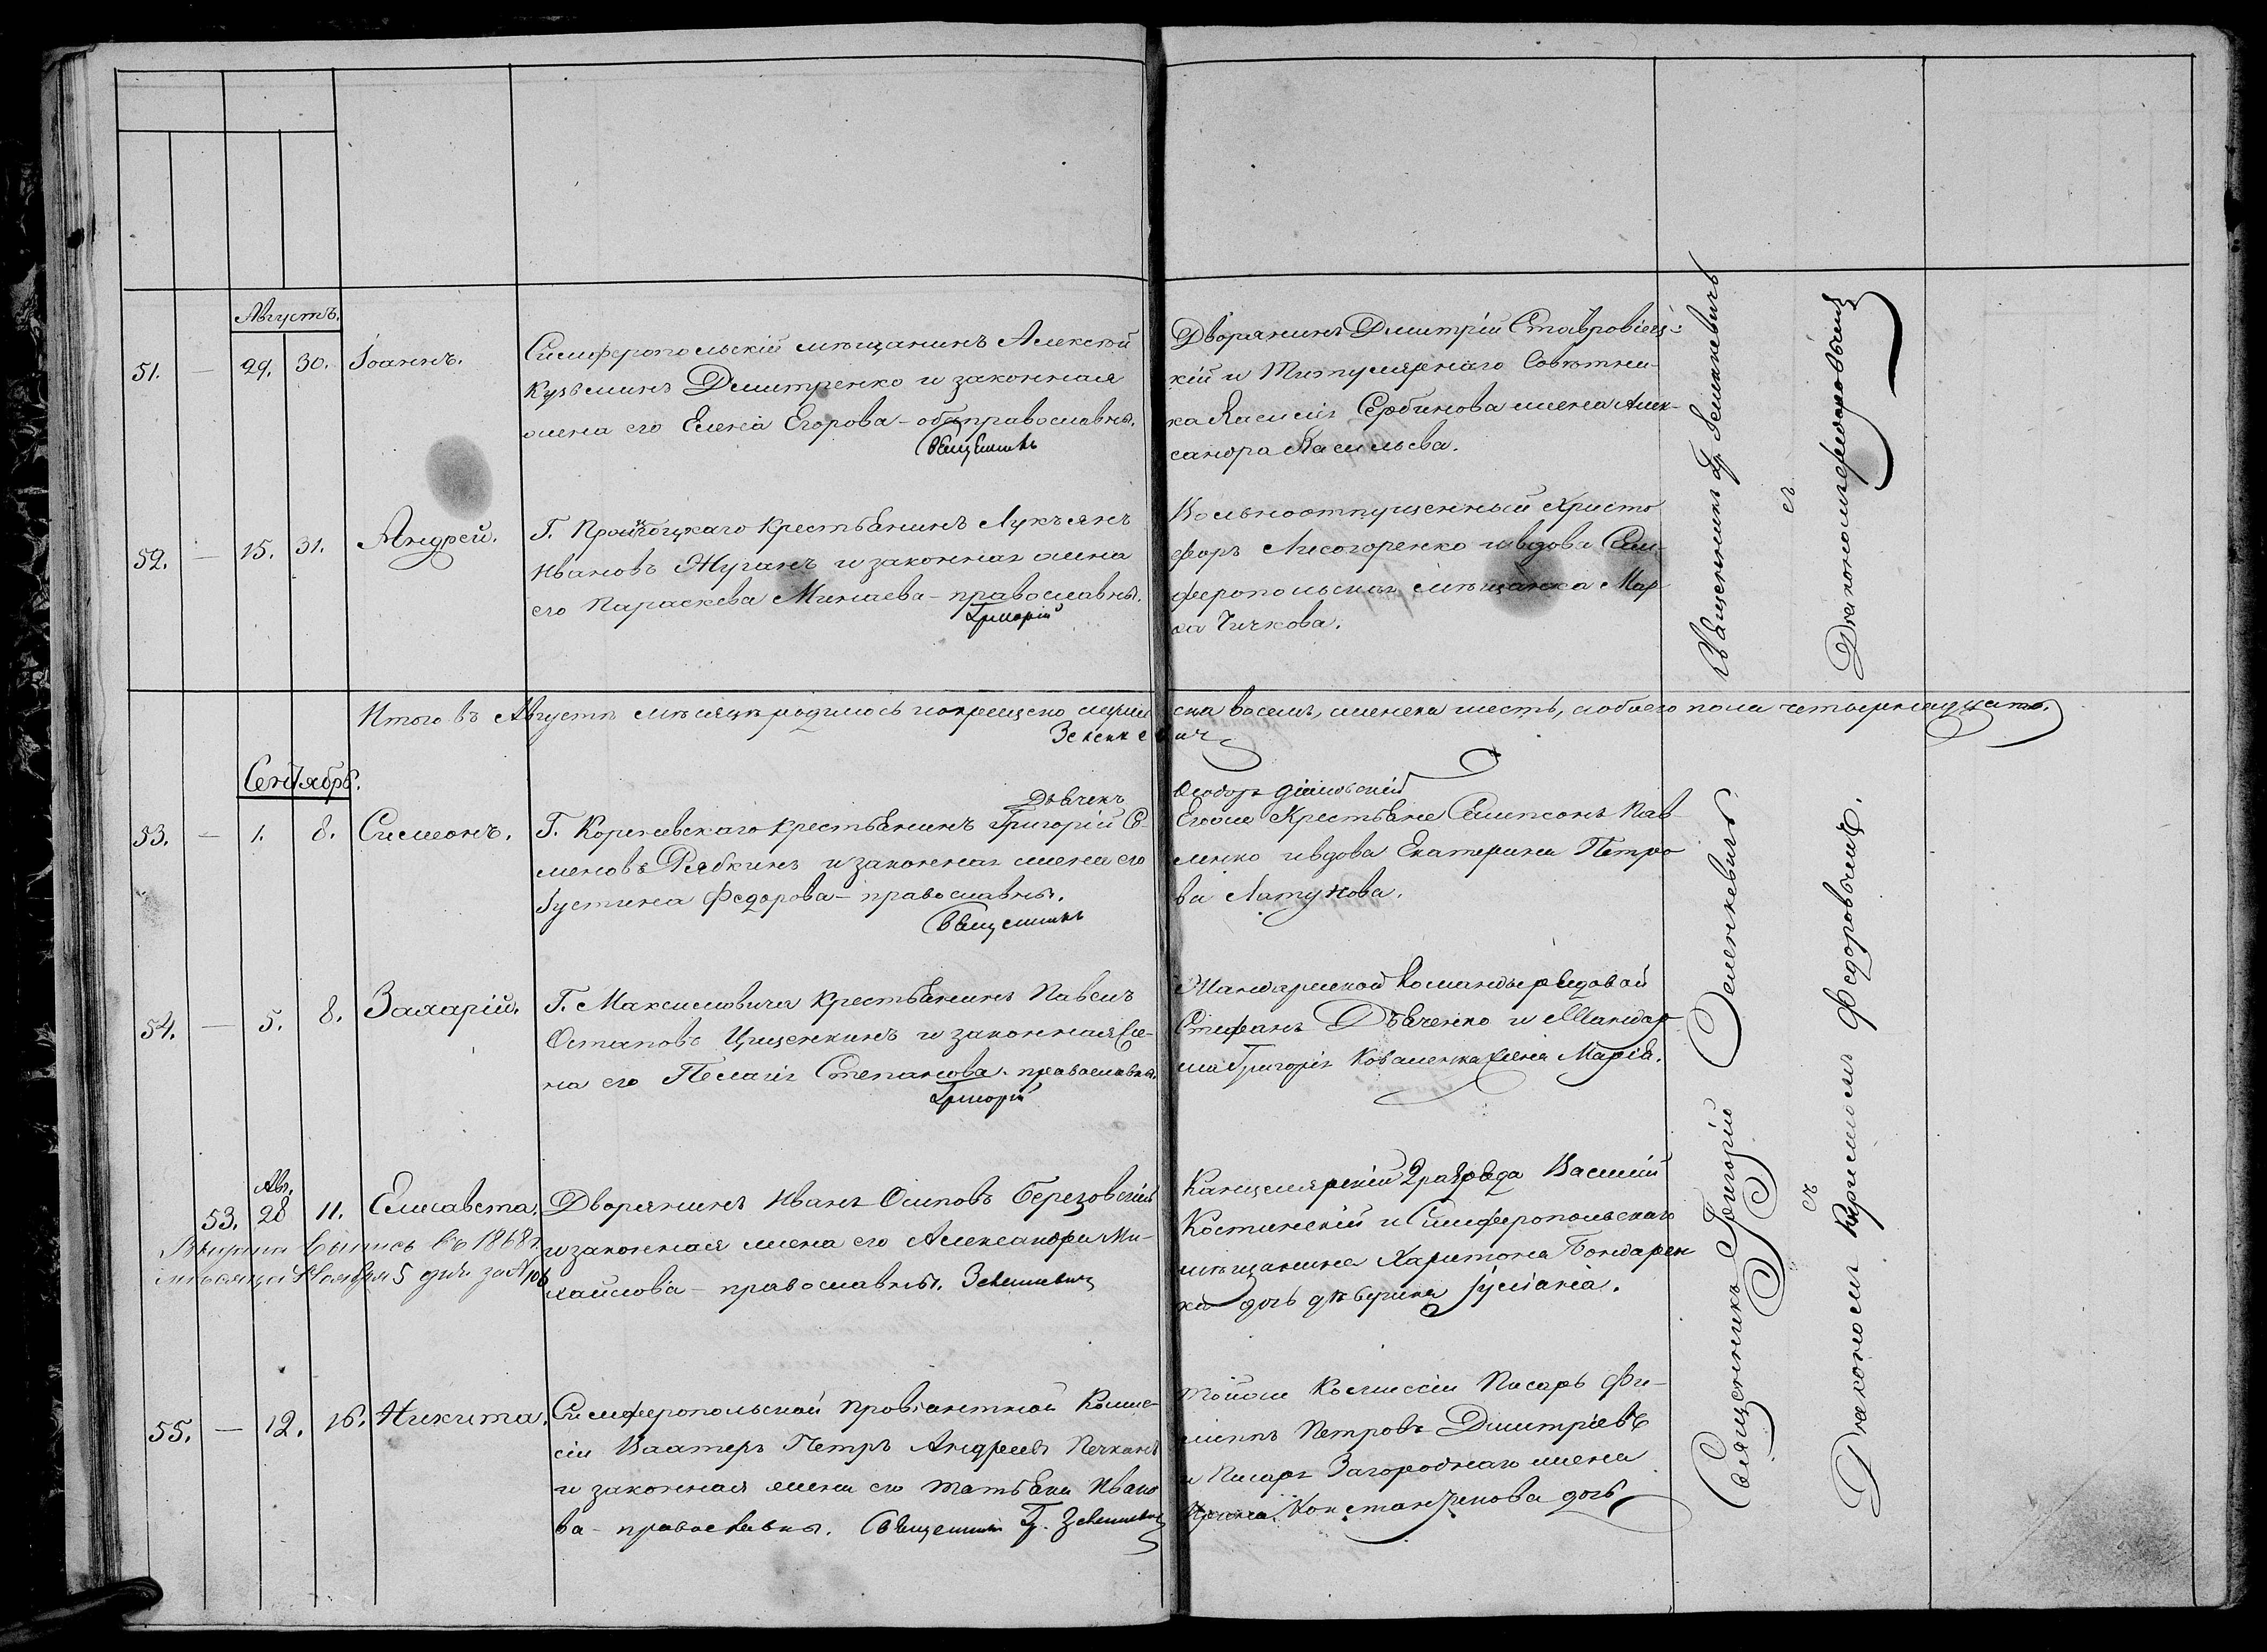 Августъ.
51. — 29. 30. Іоаннъ.
Симферопольскій мѣщанинъ Алексѣй
Кузьминъ Димитренко и законная
жена его Елена Егорова – оба православны.
Священникъ
Дворянинъ Димитрій Ставровіец-
кій и Титулярнаго Совѣтни-
ка Василія Сербинова жена Алек-
сандра Васильева.
52. — 15. 31. Андрей.
Г. крестьянинъ Лукьянъ
Ивановъ Жуганъ и законная жена
его Параскева Минаева – православны.
Григорій
Вольноотпущенный Христо
форъ Лисогоренко и вдова Сим-
феропольская мѣщанка Мар
ѳа Чичкова.
Священникъ Гр. Зеленкевичъ
съ
Діакономъ Федоровымъ
Итого въ Августѣ мѣсяцѣ родилось и крещено мужескаго восемь, женска шесть, а обоего пола четырнадцать.
Зеленкевичъ
Сентябрь.
53. — 1. 8. Симеонъ.
Г. крестьянинъ Григорій Се-
меновъ Рябкинъ и законная жена его
Іустина Федорова – православны.
Священникъ
Ѳеодоръ
Егоже Крестьяне Сампсонъ Пав-
ленко и вдова Екатерина Петро
ва Латунова.
54. — 5. 8. Захарій.
Г. Максимовича крестьянинъ Павелъ
Остаповъ и законная же-
на его Пелагія Степанова – православны.
Григорій
Жандармской команды рядовой
Стефанъ Дьяченко и Жандар-
ма Григорія Коваленка жена Марія.
53. Авг. 28 11. Елисавета.
Дворянинъ Иванъ Осиповъ Березовскій
и законная жена его Александра Ми-
хайлова – православны. Зеленкевичъ
Выдана выпись въ 1868 г.
мѣсяца Ноября 5 дня за №106
Канцелярскій 2 разряда Василій
Костинскій и Симферопольскаго
мѣщанина Харитона Бондарен
ка дочь дѣвица Іуліанія.
55. — 12. 16. Никита.
Симферопольской провіантской Комис-
сіи Вахтеръ Петръ Андреевъ Печкинъ
и законная жена его Татьяна Ивано
ва – православны. Священникъ Гр. Зеленкевичъ
Тойже Коммиссіи Писарь Фи-
липпъ Петровъ Димитріевъ
и Писаря Загороднаго жена
Константинова дочь
Священникъ Григорій Зеленкевичъ
съ
Діакономъ Кирилломъ Федоровымъ.